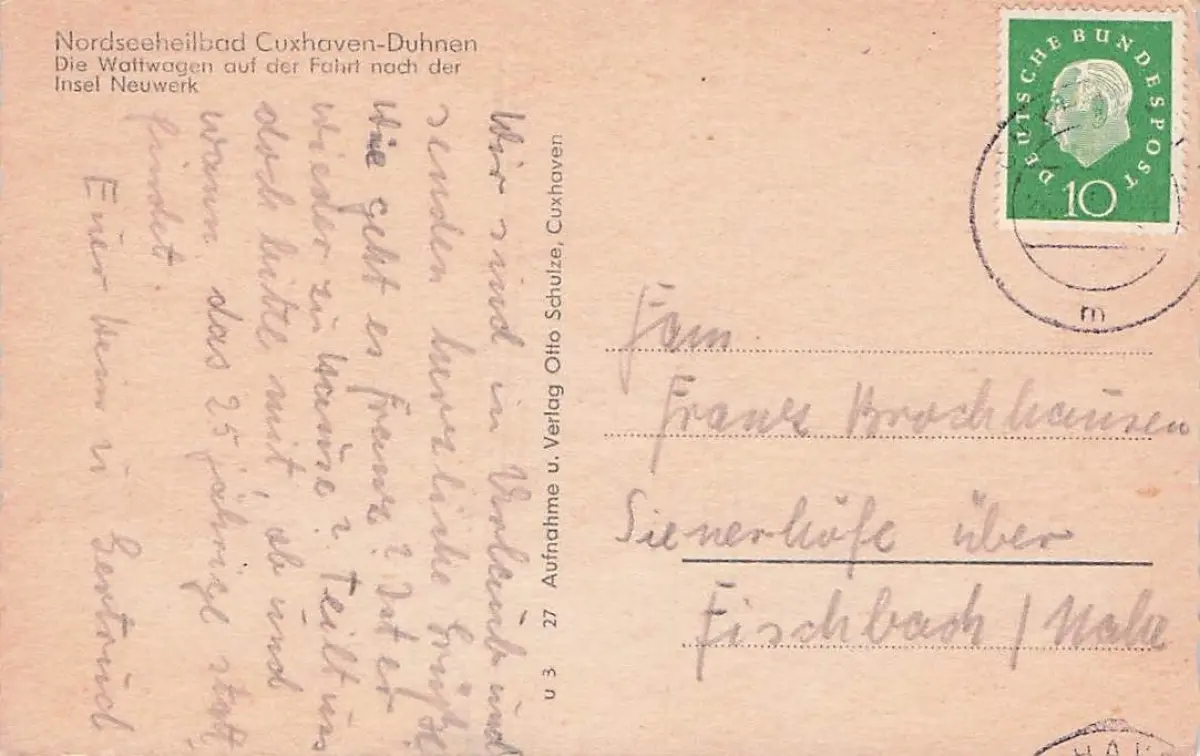 Nordseeheilbad Cuxhaven-Duhnen
Die Wattwagen auf der Fahrt nach der
Insel Neuwerk
Wir sind in Urlaub und
senden herzliche Grüße.
Wie geht es Franz? Ist er
wieder zu Hause? Teilt uns
doch bitte mit, ob und
wann das 25 jährige statt
findet.
Euer Heini u Gertrud
u 3 27 Aufnahme u. Verlag Otto Schulze, Cuxhaven
DEUTSCHE BUNDESPOST
10
m
Fam.
Franz Brochhausen
Sienerhöfe über
Fischbach / Nahe